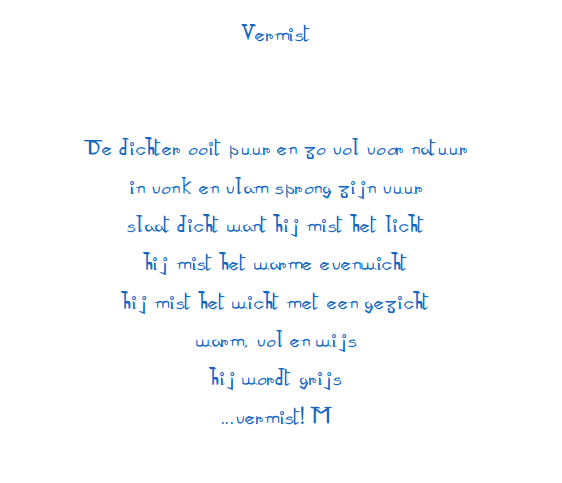 Vermist
De dichter ooit puur en zo vol voor natuur
in vonk en vlam sprong zijn vuur
slaat dicht want hij mist het licht
hij mist het warme evenwicht
hij mist het wicht met een gezicht
warm, vol en wijs
hij wordt grijs
...vermist! M